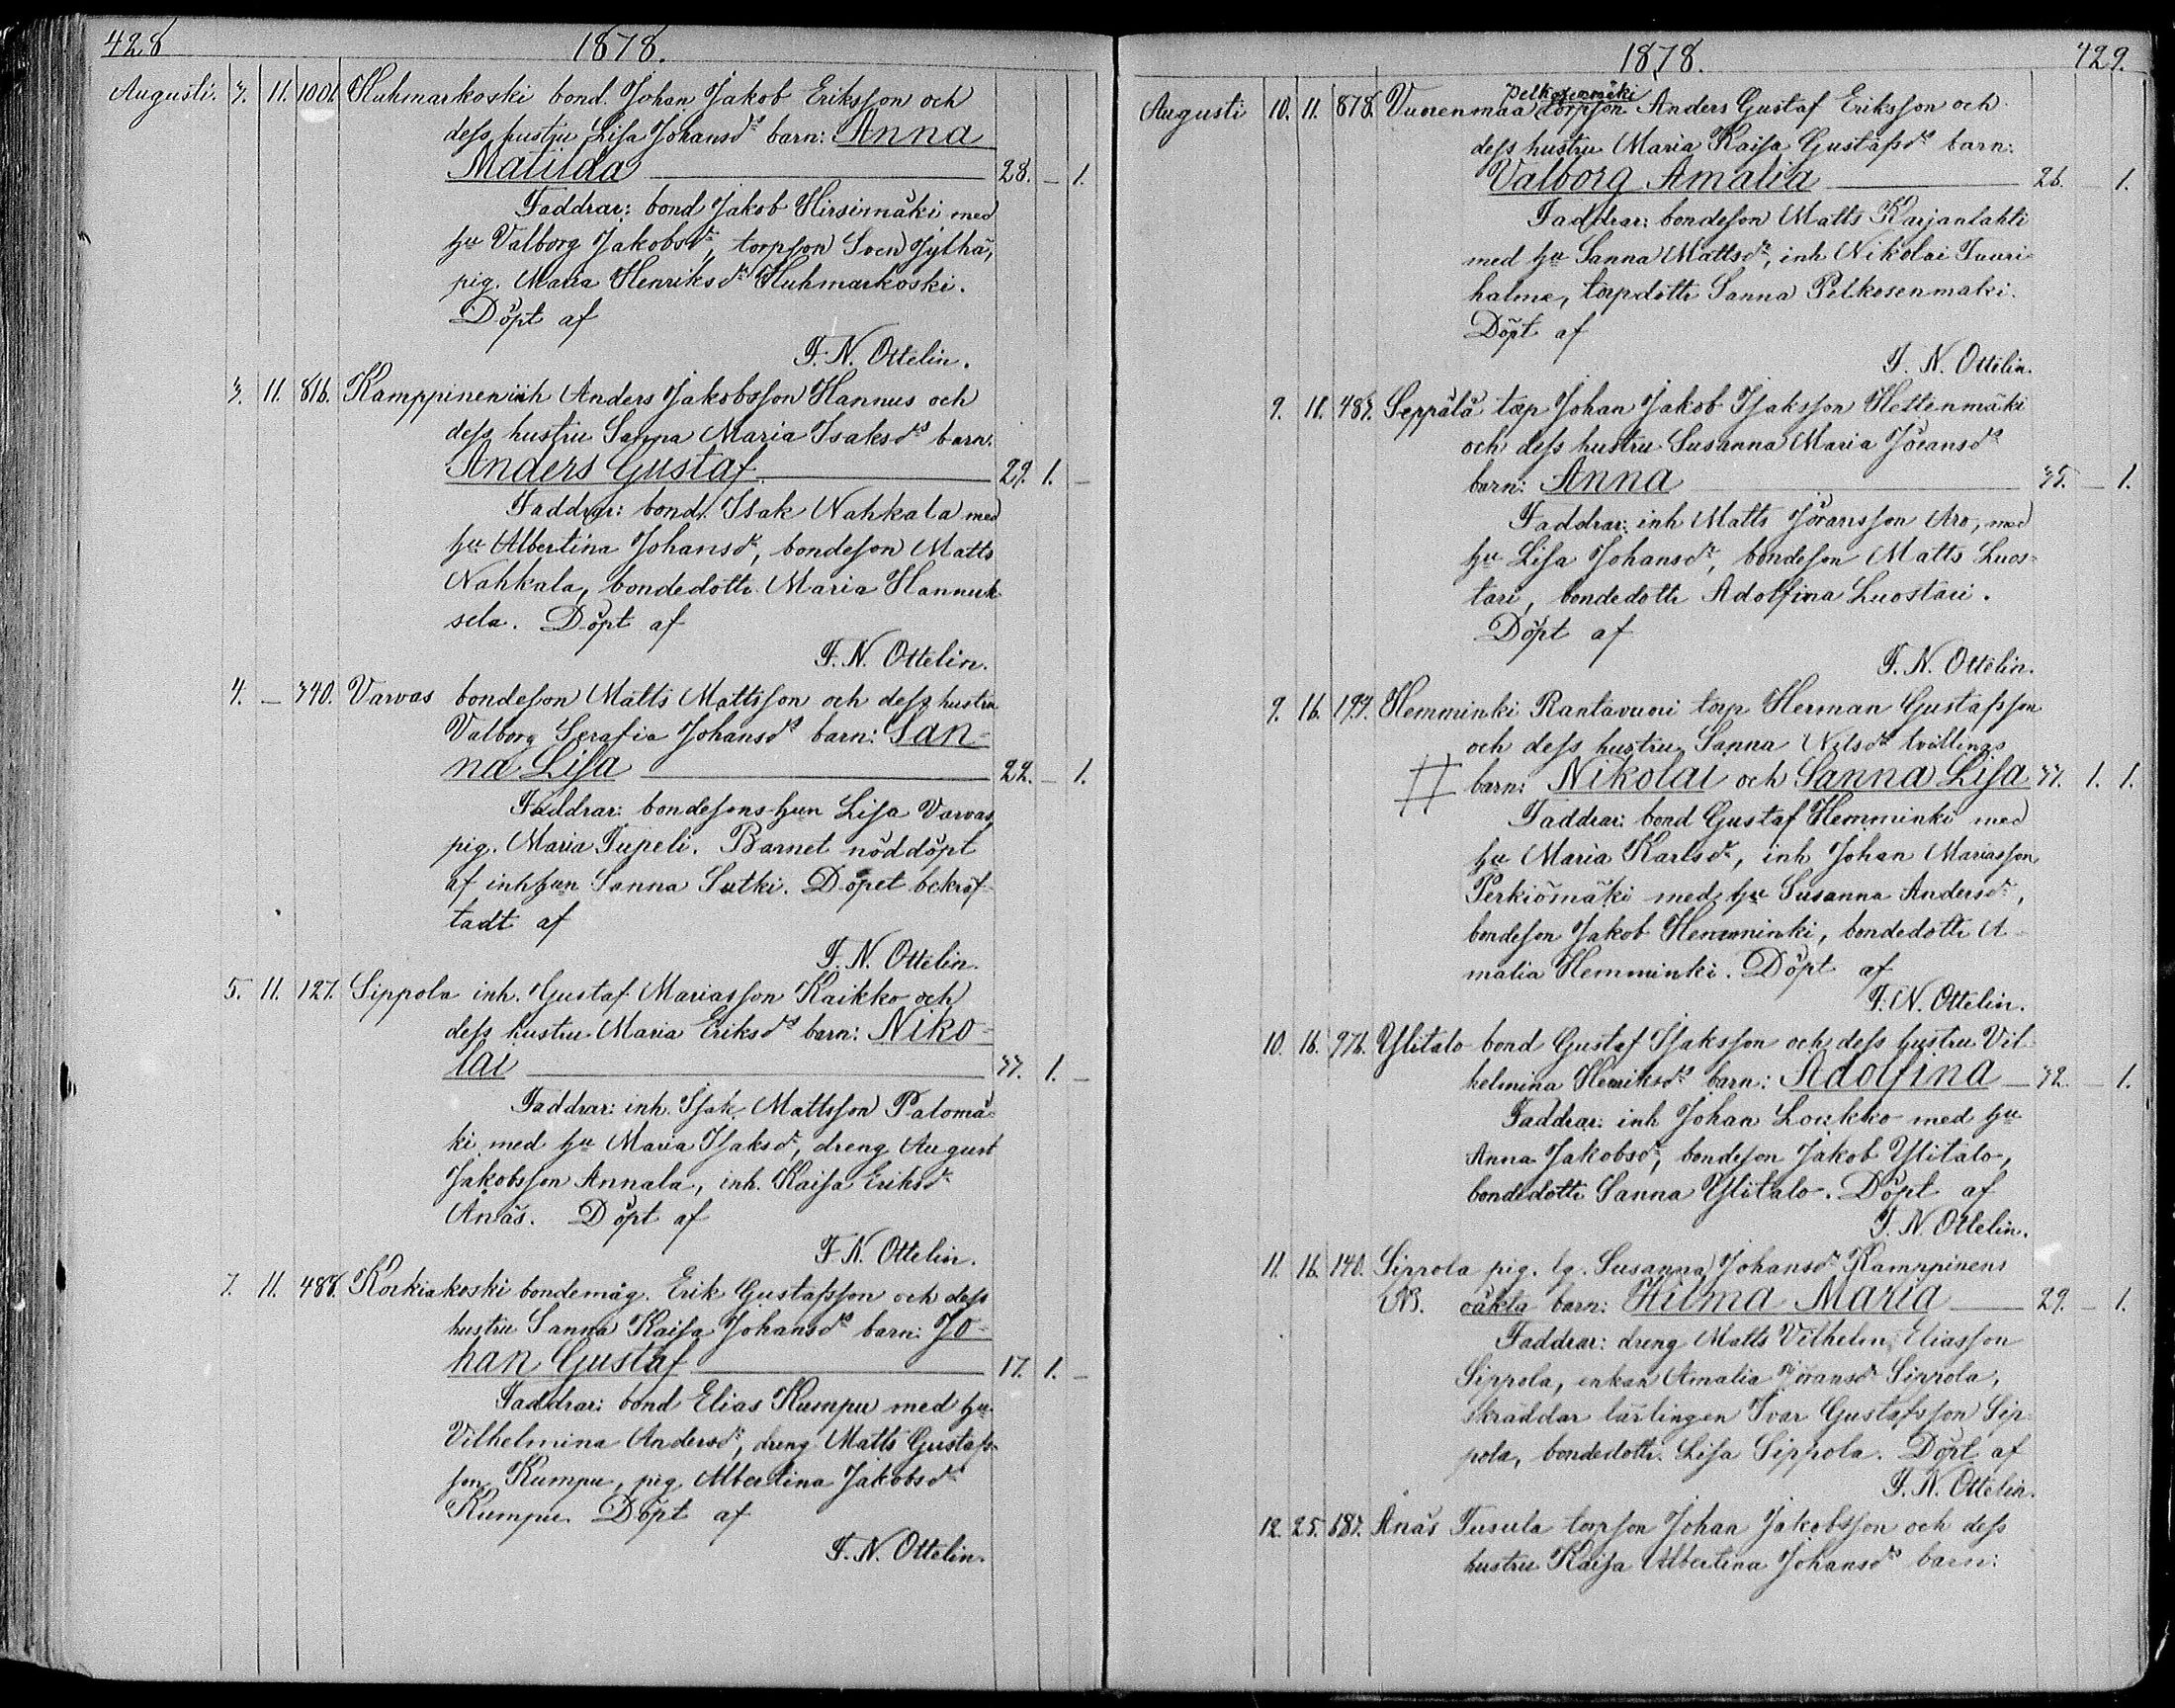 428 1878.
Augusti. 3. 11. 1001. Huhmarkoski bond. Johan Jakob Eriksson och
dess hustru Lisa Johansdrs barn: Anna
Matilda 28. — 1.
Faddrar: bond Jakob Hirsimäki med
hu Valborg Jakobsdr, torpson Sven Jylhä,
pig. Maria Henriksdr Huhmarkoski.
Döpt af
F. N. Ottelin.
3. 11. 816. Kamppinen inh Anders Jakobsson Hannus och
dess hustru Sanna Maria Isaksdrs barn:
Anders Gustaf 29. 1. —
Faddrar: bond. Isak Nahkala med
hu Albertina Johansdr, bondeson Matts
Nahkala, bondedottr. Maria Hannuk-
sela. Döpt af
F. N. Ottelin.
4. — 340. Varvas bondeson Matts Mattsson och dess hustru
Valborg Serafia Johansdrs barn: San-
na Lisa 22. — 1.
Faddrar: bondesons hun Lisa Varvas,
pig. Maria Tupeli. Barnet nöddöpt
af inh hun Sanna Sutki. Dopet bekräf-
tadt af
F. N. Ottelin.
5. 11. 127. Sippola inh. Gustaf Mariasson Kaikko och
dess hustru Maria Eriksdrs barn: Niko-
lai 37. 1. —
Faddrar: inh. Isak Mattsson Palomä-
ki med hu Maria Isaksdr, dreng August
Jakobsson Annala, inh. Kaisa Eriksdr
Änäs. Döpt af
F. N. Ottelin.
7. 11. 488. Korkiakoski bondemåg. Erik Gustafsson och dess
hustru Sanna Kaisa Johansdrs barn: Jo-
han Gustaf 17. 1. —
Faddrar: bond Elias Kumpu med hu
Vilhelmina Andersdr, dreng Matts Gustafs-
son Kumpu, pig Albertina Jakobsdr
Kumpu. Döpt af
F. N. Ottelin.
1878. 429.
Pelkosenmäki
Augusti 10. 11. 878. Vuorenmaa torpson Anders Gustaf Eriksson och
dess hustru Maria Kaisa Gustafsdrs barn:
Valborg Amalia 26. — 1.
Faddrar: bondeson Matts Karjanlahti
med hu Sanna Mattsdr, inh Nikolai Tuuri-
halme, torpdottr Sanna Pelkosenmäki.
Döpt af
F. N. Ottelin.
9. 11. 487. Seppälä torp Johan Jakob Isaksson Hettenmäki
och dess hustru Susanna Maria Jöransdrs
barn: Anna 35. — 1.
Faddrar: inh Matts Jöransson Aro, med
hu Lisa Johansdr, bondeson Matts Luos-
tari, bondedottr Adolfina Luostari.
Döpt af
F. N. Ottelin.
9. 16. 199. Hemminki Rantavuori torp Herman Gustafsson
och dess hustru Sanna Nilsdrs tvillings
barn: Nikolai och Sanna Lisa 37. 1. 1.
Faddrar: bond Gustaf Hemminki med
hu Maria Karlsdr, inh Johan Mariasson
Perkiömäki med hu Susanna Andersdr,
bondeson Jakob Hemminki, bondedottr A-
malia Hemminki. Döpt af
F. N. Ottelin.
10. 16. 976. Ylitalo bond Gustaf Isaksson och dess hustru Vil-
helmina Henriksdrs barn: Adolfina 32. — 1.
Faddrar: inh Johan Loukko med hu
Anna Jakobsdr, bondeson Jakob Ylitalo,
bondedottr Sanna Ylitalo. Döpt af
F. N. Ottelin.
11. 16. 140. Sippola pig. lg. Susanna Johansdr Kamppinens
NB. oäkta barn: Hilma Maria 29. — 1.
Faddrar: dreng Matts Vilhelm Eliasson
Sippola, enkan Amalia Jöransdr Sippola,
skräddar lärlingen Ivar Gustafsson Sip-
pola, bondedottr. Lisa Sippola. Döpt af
F. N. Ottelin.
12. 25. 687. Änäs Tusula torpson Johan Jakobsson och dess
hustru Kaisa Albertina Johansdrs barn: